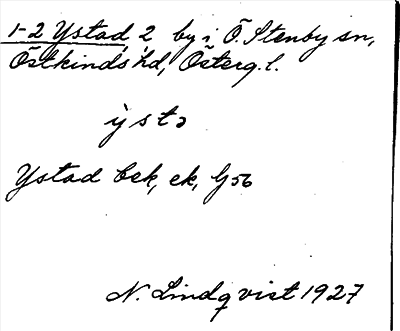 1-2 Ystad, 2 by i Ö. Stenby sn,
Östkinds hd, Österg. l.
ỳstə
Ystad bek, ek, G56
N. Lindqvist 1927